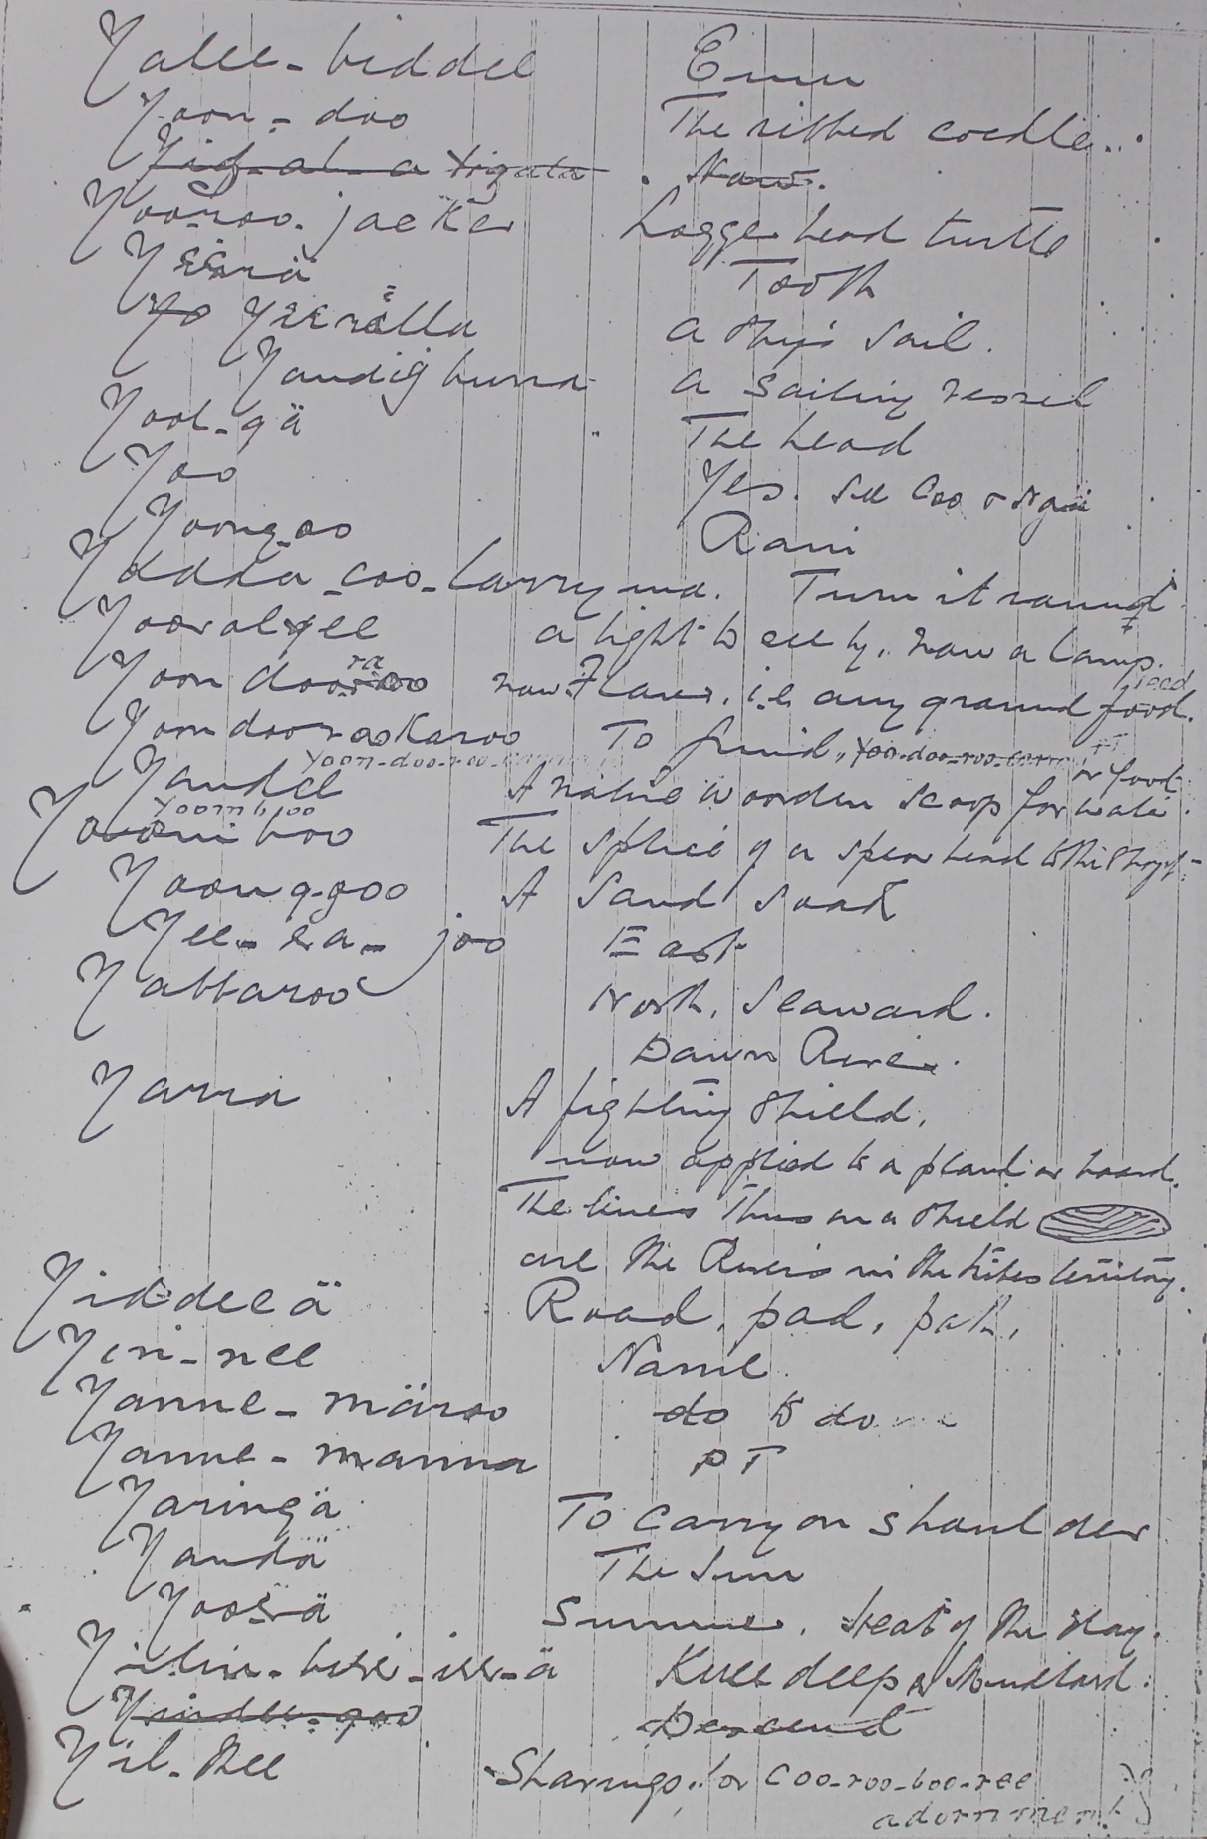 Yalee-biddee Emu
Yoon-doo The ribbed cockle..
Yig-al-a Yigala . Now.
Yooroo-jacker Loggerhead turtle
Yeera Tooth
Yo Yeeralla a ship's sail.
Yandig hurra a sailing vessel
Yool-gä The head
Yoo Yes. See Coo or Ngaä
Yoong-oo Rain
Yadda-coo-larry ma. Turn it round.
Yooralgee a light to see by, now a lamp.
Yoondooroo ra now Flour, i.e. any ground food. seed
Yoondooroo Karoo To grind, Yoo-doo-roo-
Yoon-doo-roo- or food
Yandel A native wooden scoop for water.
Yoomboo
boo The splice of a spear head to the shaft.
Yoong-goo A Sand soak
Yee-ra-joo East
Yabbaroo North, Seaward.
Down River.
Yarra A fighting shield,
now applied to a plank or board.
The lines thus on a shield
are the Rivers in the tribes territory.
Yiddeeä Road, pad, path,
Yin-nee Name.
Yanne-märoo do to do
Yanne-manna PT
Yaringä To carry on shoulder
Yandä The Sun
Yooerä Summer. heat of the day.
Knee deep
Yandee-goo Descend
Yil-bee Shavings for Coo-roo-boo-ree
adornment